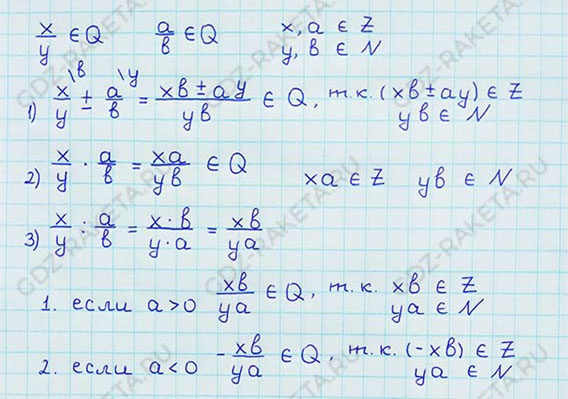 x/y ∈ Q    a/в ∈ Q    x, a ∈ Z
y, в ∈ N
1) x/y \в ± a/в \y = (xв ± ay)/(yв) ∈ Q, т.к. (xв ± ay) ∈ Z
yв ∈ N
2) x/y · a/в = xa/yв ∈ Q    xa ∈ Z    yв ∈ N
3) x/y : a/в = (x · в)/(y · a) = xв/ya
1. если a > 0  xв/ya ∈ Q, т.к. xв ∈ Z
ya ∈ N
2. если a < 0  - xв/ya ∈ Q, т.к. (-xв) ∈ Z
ya ∈ N
GDZ-RAKETA.RU